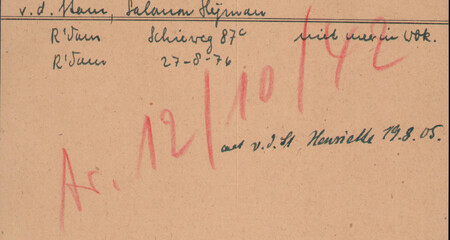 v. d. Stam, Salomon Heyman
R'dam Schieweg 87c niet meer in Wbk.
R'dam 27-8-76
Ar. 12/10/42
met v.d. St Henriette 19.8.05.